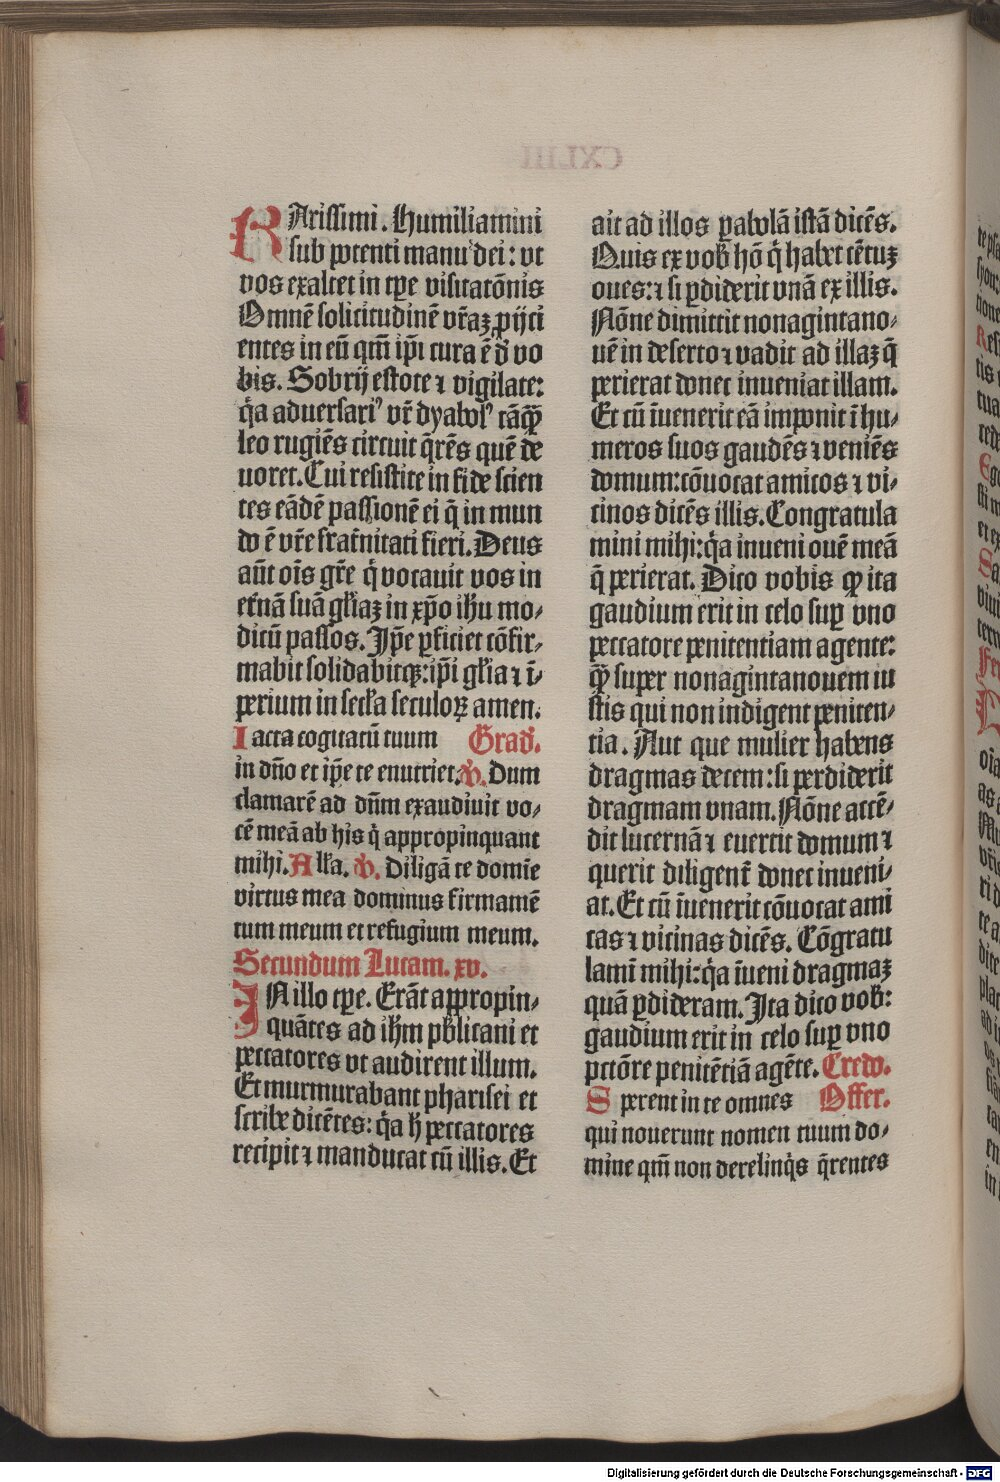 KArissimi. Humiliamini
sub potenti manu dei: vt
vos exaltet in tp̄e visitatōnis
Omnē solicitudinē vr̄aꝫ ꝓijci
entes in eū qm̄ ip̄i cura ē d̄ vo
bis. Sobrij estote ⁊ vigilate:
q̇a aduersariꝰ vr̄ dyabolꝰ tāꝗ̄
leo rugiēs circuit q̄rēs quē de
uoret. Cui resistite in fide scien
tes eādē passionē ei q̄ in mun
do ē vr̄e frat̄nitati fieri. Deus
aūt oīs gr̄e q̇ vocauit vos in
et̄nā suā gl̄iaꝫ in xp̄o ih̄u mo⸗
dicū passos. Ip̄e ꝑficiet cōfir⸗
mabit solidabitqꝫ: ip̄i gl̄ia ⁊ ī⸗
perium in secl̄a seculoꝝ amen.
Iacta cogitatū tuum Grad.
in dn̄o et ip̄e te enutriet. ℣. Dum
clamarē ad dn̄m exaudiuit vo⸗
cē meā ab his q̇ appropinquant
mihi. All̄a. ℣. Diligā te domīe
virtus mea dominus firmamē
tum meum et refugium meum.
Secundum Lucam. xv.
IN illo tp̄e. Erāt appropin⸗
quātes ad ih̄m pb̄licani et
peccatores vt audirent illum.
Et murmurabant pharisei et
scribe dicētes: q̇a h̄ peccatores
recipit ⁊ manducat cū illis. Et
ait ad illos ꝑabolā istā dicēs.
Quis ex vob̄ hō q̇ habet cētuꝫ
oues: ⁊ si ꝑdiderit vnā ex illis.
Nōne dimittit nonagintano⸗
uē in deserto ⁊ vadit ad illaꝫ q̄
perierat donec inueniat illam.
Et cū īuenerit eā imponit ī hu⸗
meros suos gaudēs ⁊ veniēs
domum: cōuocat amicos ⁊ vi⸗
cinos dicēs illis. Congratula
mini mihi: q̇a inueni ouē meā
q̄ perierat. Dico vobis ꝙ ita
gaudium erit in celo suꝑ vno
peccatore penitentiam agente:
ꝗ̄ super nonagintanouem iu
stis qui non indigent peniten⸗
tia. Aut que mulier habens
dragmas decem: si perdiderit
dragmam vnam. Nōne accē⸗
dit lucernā ⁊ euertit domum ⁊
querit diligent̄ donec inueni⸗
at. Et cū īuenerit cōuocat ami
cas ⁊ vicinas dicēs. Cōgratu
lamī mihi: q̇a īueni dragmaꝫ
quā ꝑdideram. Ita dico vob̄:
gaudium erit in celo suꝑ vno
pctōre penitētiā agēte. Credo.
Sperent in te omnes Offer.
qui nouerunt nomen tuum do⸗
mine qm̄ non derelinq̇s q̄rentes
Digitalisierung gefördert durch die Deutsche Forschungsgemeinschaft - DFG